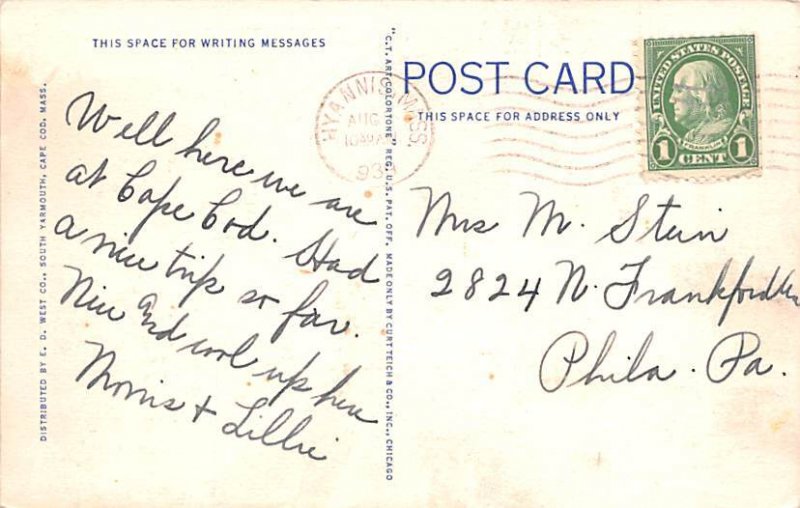 THIS SPACE FOR WRITING MESSAGES
Well here we are
at Cape Cod. Had
a nice trip so far.
Nice and cool up here
Morris + Lillie
DISTRIBUTED BY E. D. WEST CO., SOUTH YARMOUTH, CAPE COD, MASS.
"C.T. ART COLORTONE" REG. U.S. PAT. OFF. MADE ONLY BY CURT TEICH & CO., INC., CHICAGO
HYANNIS MASS.
AUG
10
193
POST CARD
THIS SPACE FOR ADDRESS ONLY
UNITED STATES POSTAGE
FRANKLIN
1 CENT 1
Mrs M. Stein
2824 N. Frankford
Phila. Pa.